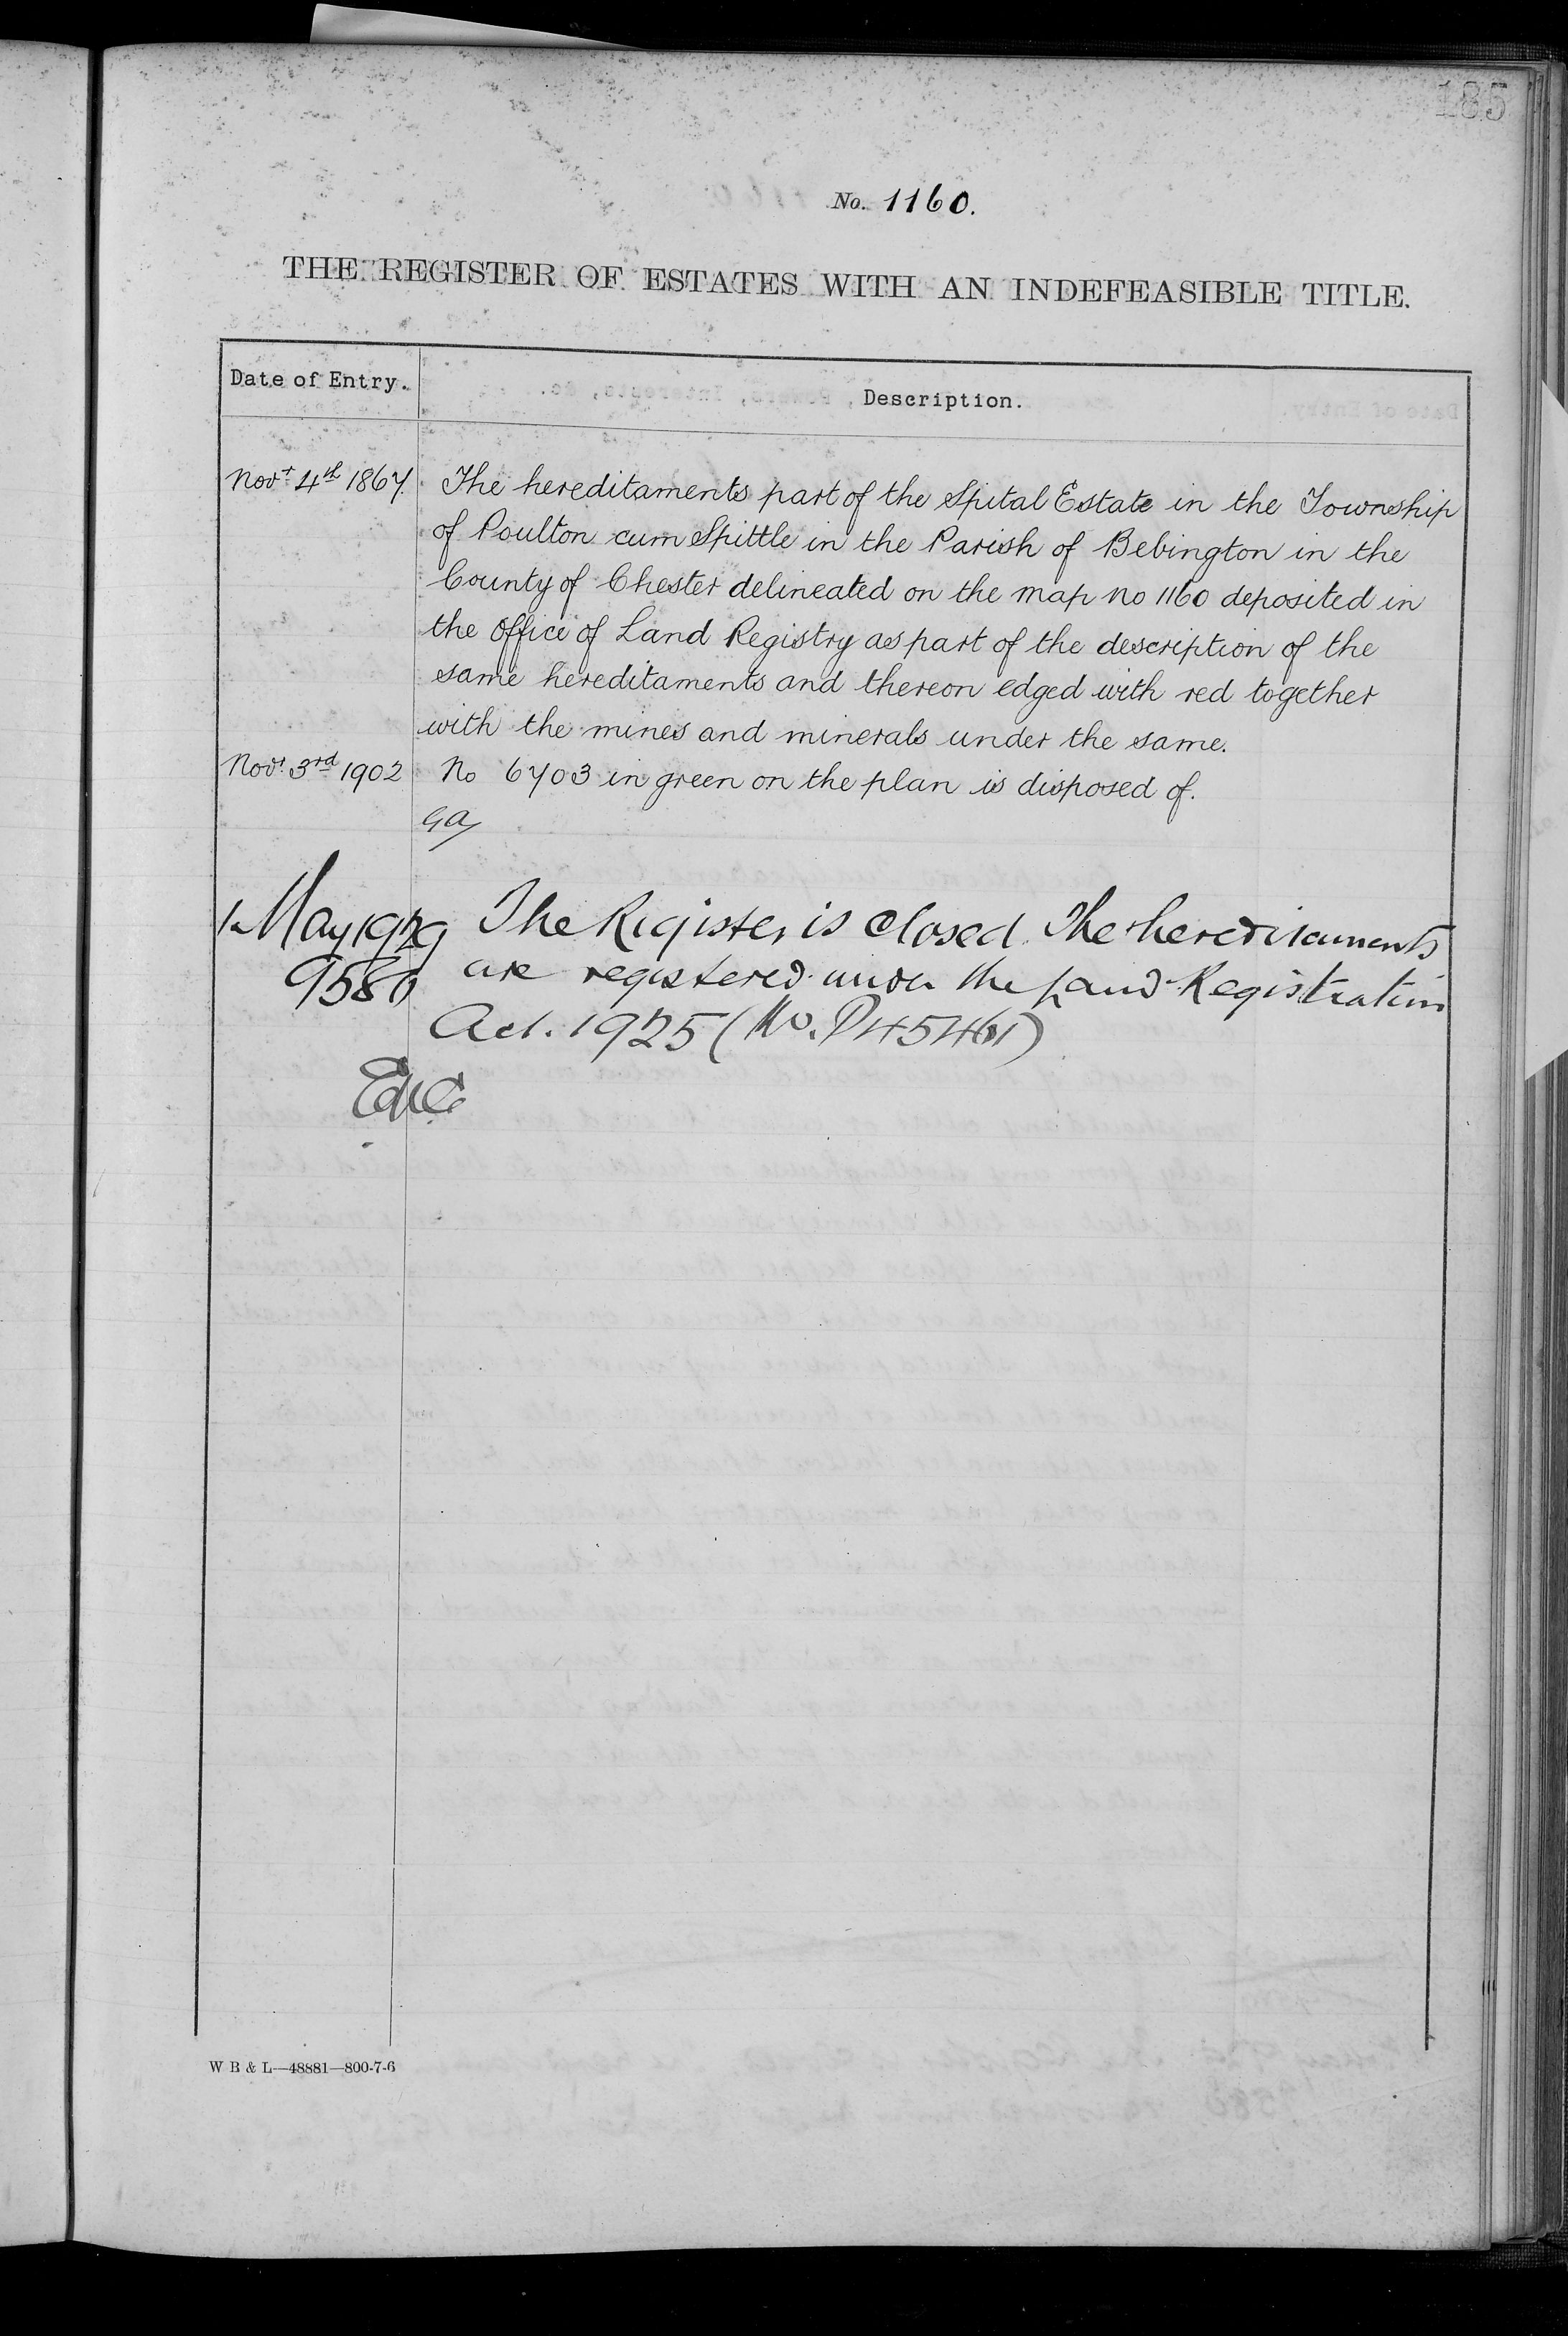 185
No. 1160.
THE REGISTER OF ESTATES WITH AN INDEFEASIBLE TITLE.
Date of Entry.
Description.
Novr 4th 1867. The hereditaments part of the Spital Estate in the Township
of Poulton cum Spittle in the Parish of Bebington in the
County of Chester delineated on the map no 1160 deposited in
the Office of Land Registry as part of the description of the
same hereditaments and thereon edged with red together
with the mines and minerals under the same.
Novr 3rd 1902 No 6703 in green on the plan is disposed of.
GA
1 May 1929 The Register is closed. The hereditaments
9580 are registered under the Land Registration
Act. 1925 (No. P45461)
W B & L—48881—800-7-6